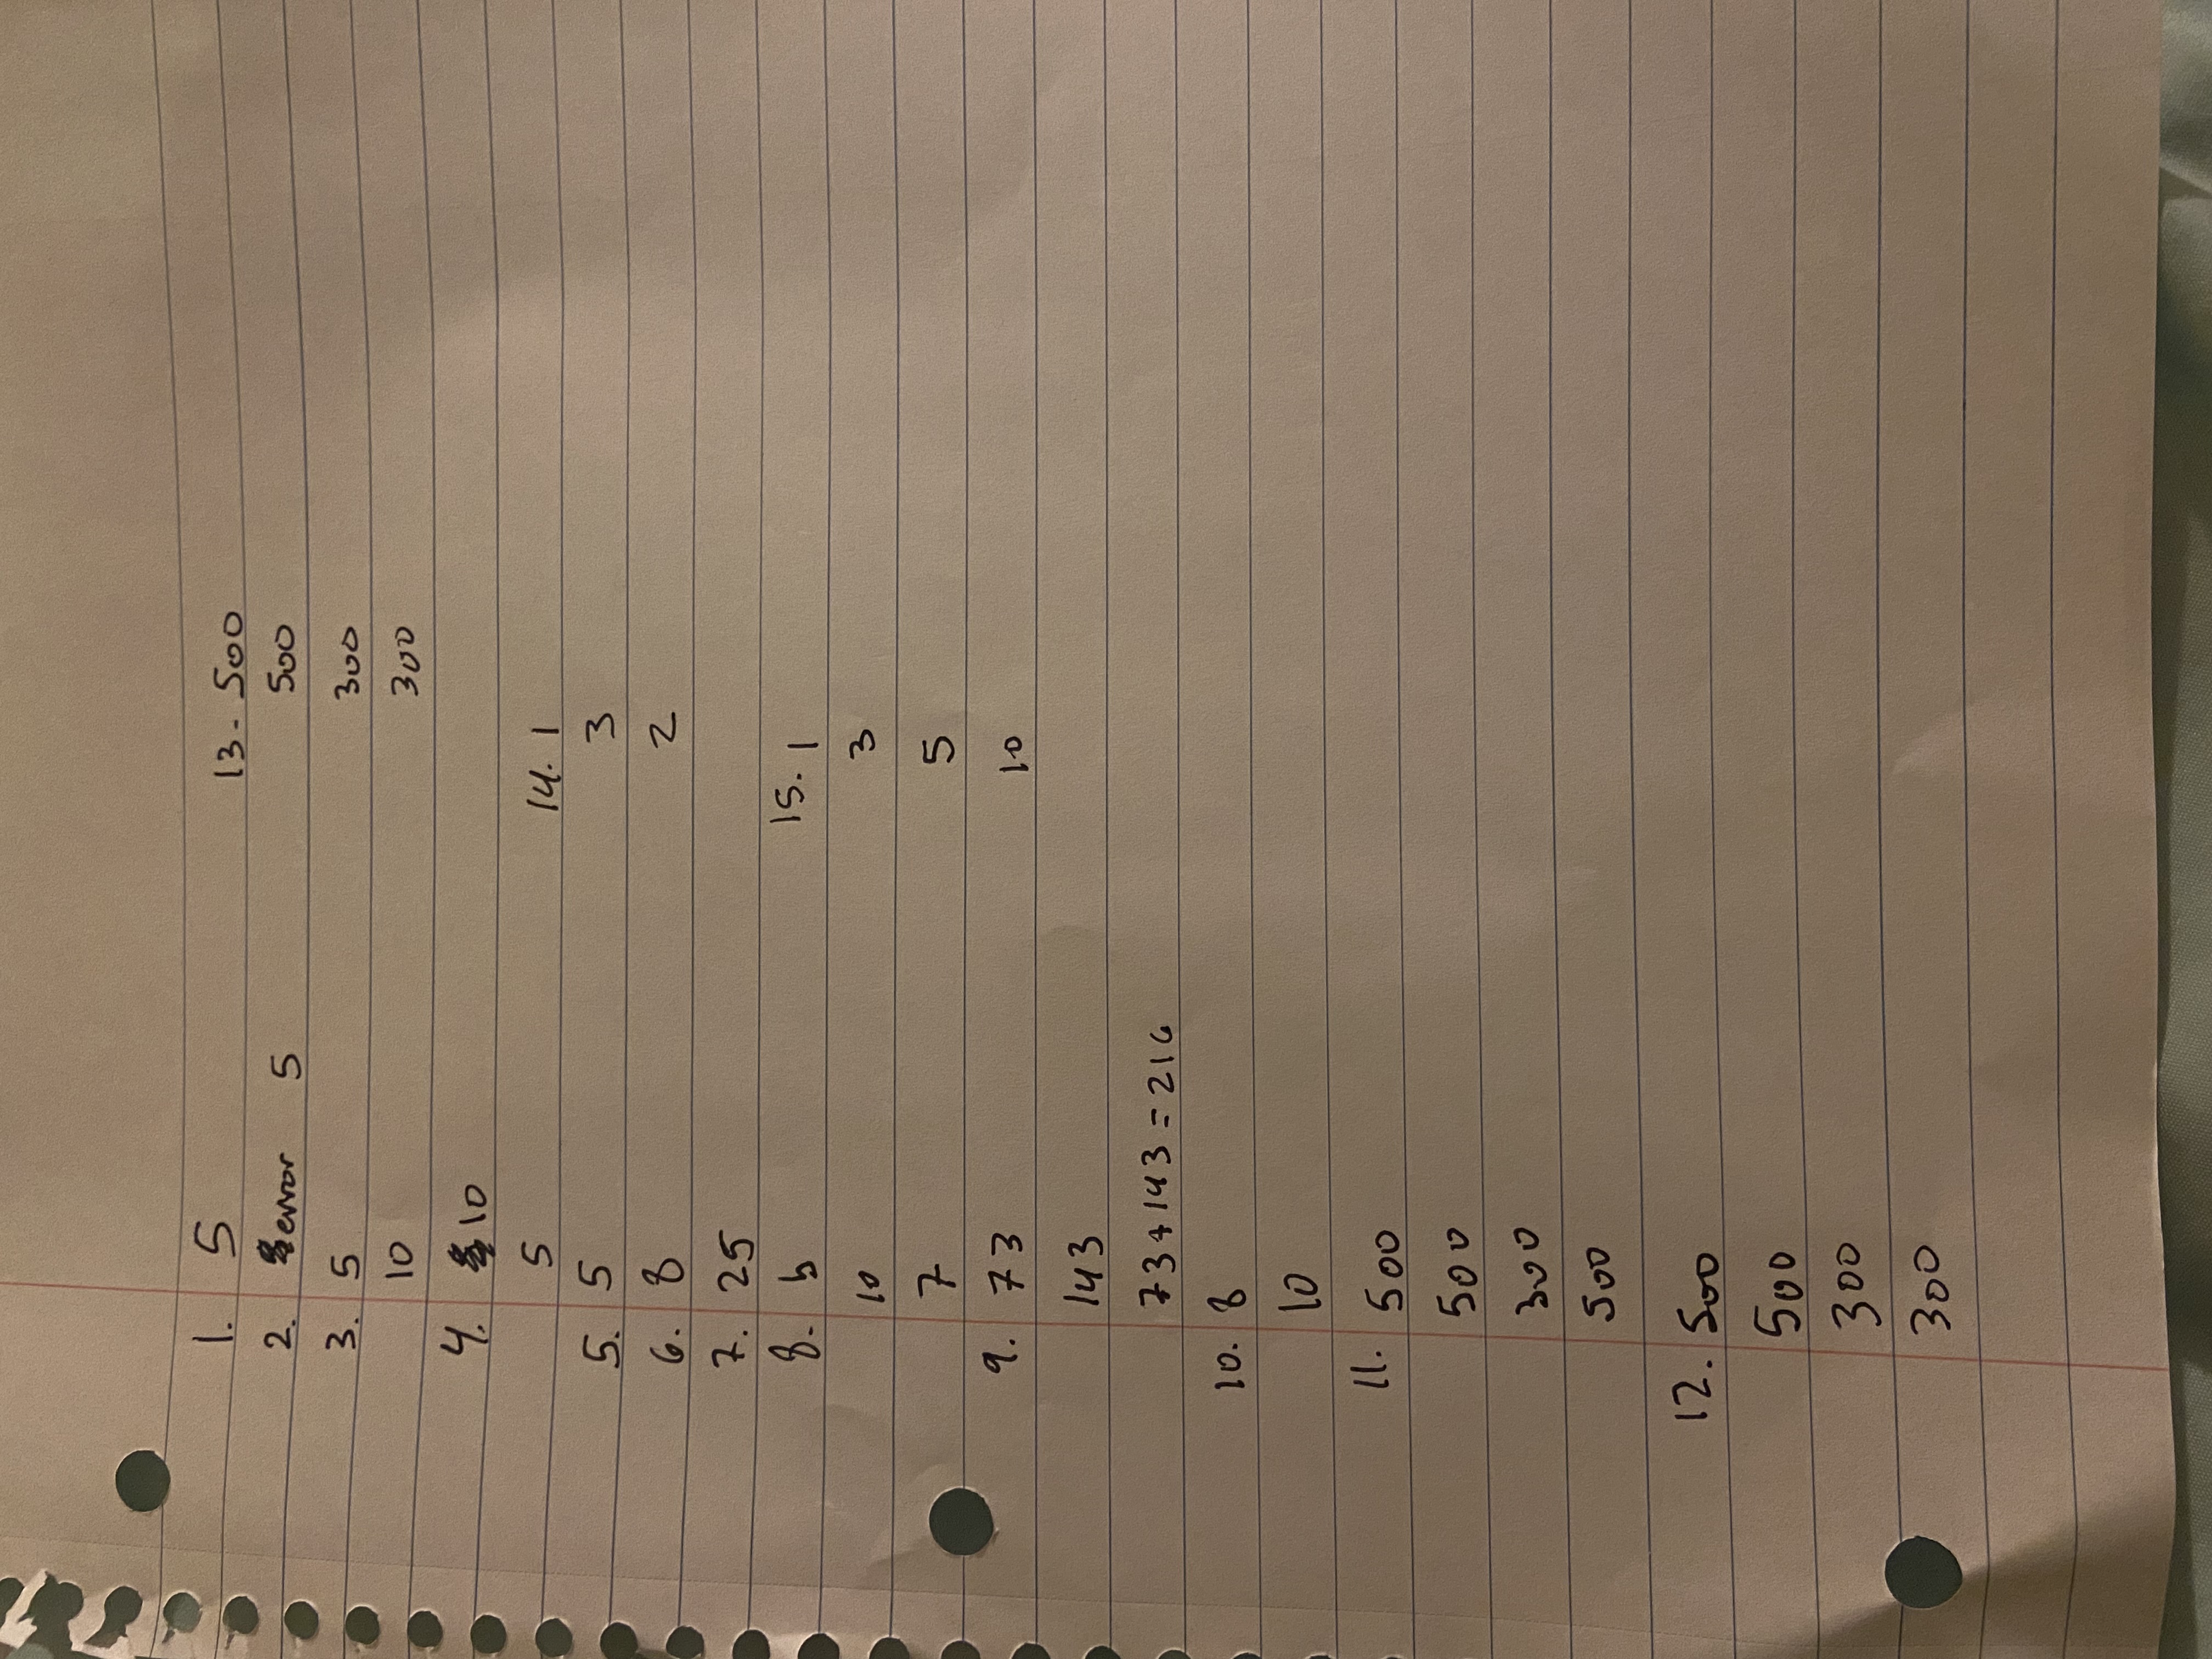 1. 5
2. error 5
3. 5
10
4. 10
5
5. 5
6. 8
7. 25
8. b
10
7
9. 73
143
73+143=216
10. 8
10
11. 500
500
300
500
12. 500
500
300
300
13. 500
500
300
300
14. 1
3
2
15. 1
3
5
10